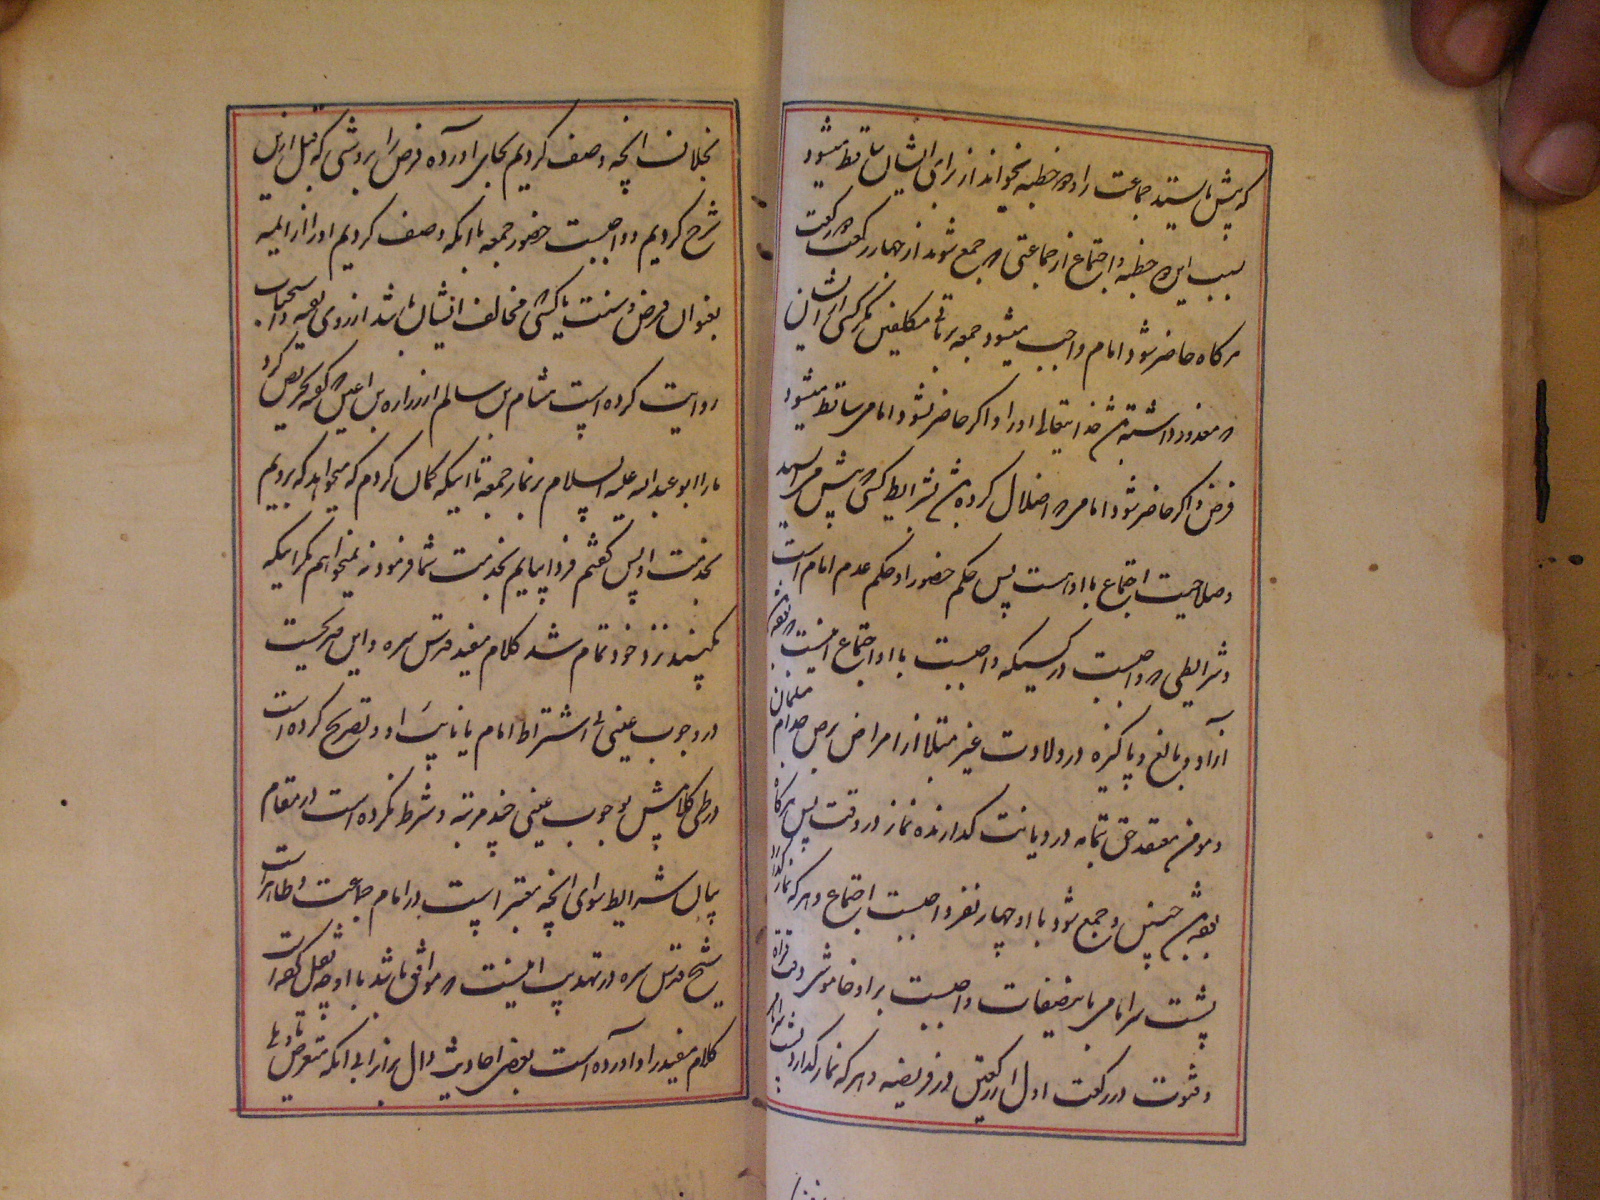 که پیش بایستید جماعت را و دو خطبه بخواند از برای ایشان ساقط میشود
بسبب این دو خطبه و اجتماع از جماعتی که جمع شوند از چهار رکعت دو رکعت
هرگاه حاضر شود امام واجب میشود جمعه بر باقی مکلفین مگر کسی از ایشان
که معذور داشته باشد خدا یتعالی او را و اگر حاضر نشود امامی ساقط میشود
فرض و اگر حاضر شود امامی که اخلال کرده باشد بشرایط کسی که پیش
وصلاحیت اجتماع با او است پس حکم حضور او حکم عدم امام است
و شرایطی که واجبست در کسیکه واجبست با او اجتماع اینست که بوده باشد
آزاد و بالغ و پاکیزه در ولادت غیر مبتلا از امراض برص جذام مسلمان
و مومن معتقد حق تمامه در دیانت گذارنده نماز در وقت پس هرگاه
بوده باشد چنین و جمع شود با او چهار نفر واجبست اجتماع و هر که نماز گذارد
پشت سر امامی باین صفات واجبست بر او خاموشی در وقت قرائه
و قنوت در رکعت اول از رکعتین در فریضه و هر که نماز گذارد پشت سر امامی
بخلاف انچه وصف کردیم بجای اورده فرض را بروشی که قبل ازین
شرح کردیم و واجبست حضور جمعه با انکه وصف کردیم او را از ائمه
بعنوان فرض و سنت با کسی که مخالف ایشان باشد از روی تقیه و استحباب
روایت کرده است هشام بن سالم از زراره بن اعین که گفت تحریص کرد
ما را ابو عبدالله علیه السلام بر نماز جمعه تا اینکه گمان کردم که میخواهد که برویم
بخدمت او پس گفتم فردا بیایم بخدمت شما فرمود نه نمیخواهم مگر اینکه
بکنید نزد خود تمام شد کلام مفید قدس سره و این صریحست
در وجوب عینی بی اشتراط امام یا نایب او و تصریح کرده است
در طی کلامش بوجوب عینی چند مرتبه و شرط نکرده است در مقام
بیان شرایط سوای انچه معتبر است در امام جماعت و ظاهر است
شیخ قدس سره در تهذیب اینست که موافق باشد با او چه نقل کرده است
کلام مفید را و اورده است بعضی احادیث دال بران بی انکه متعرض